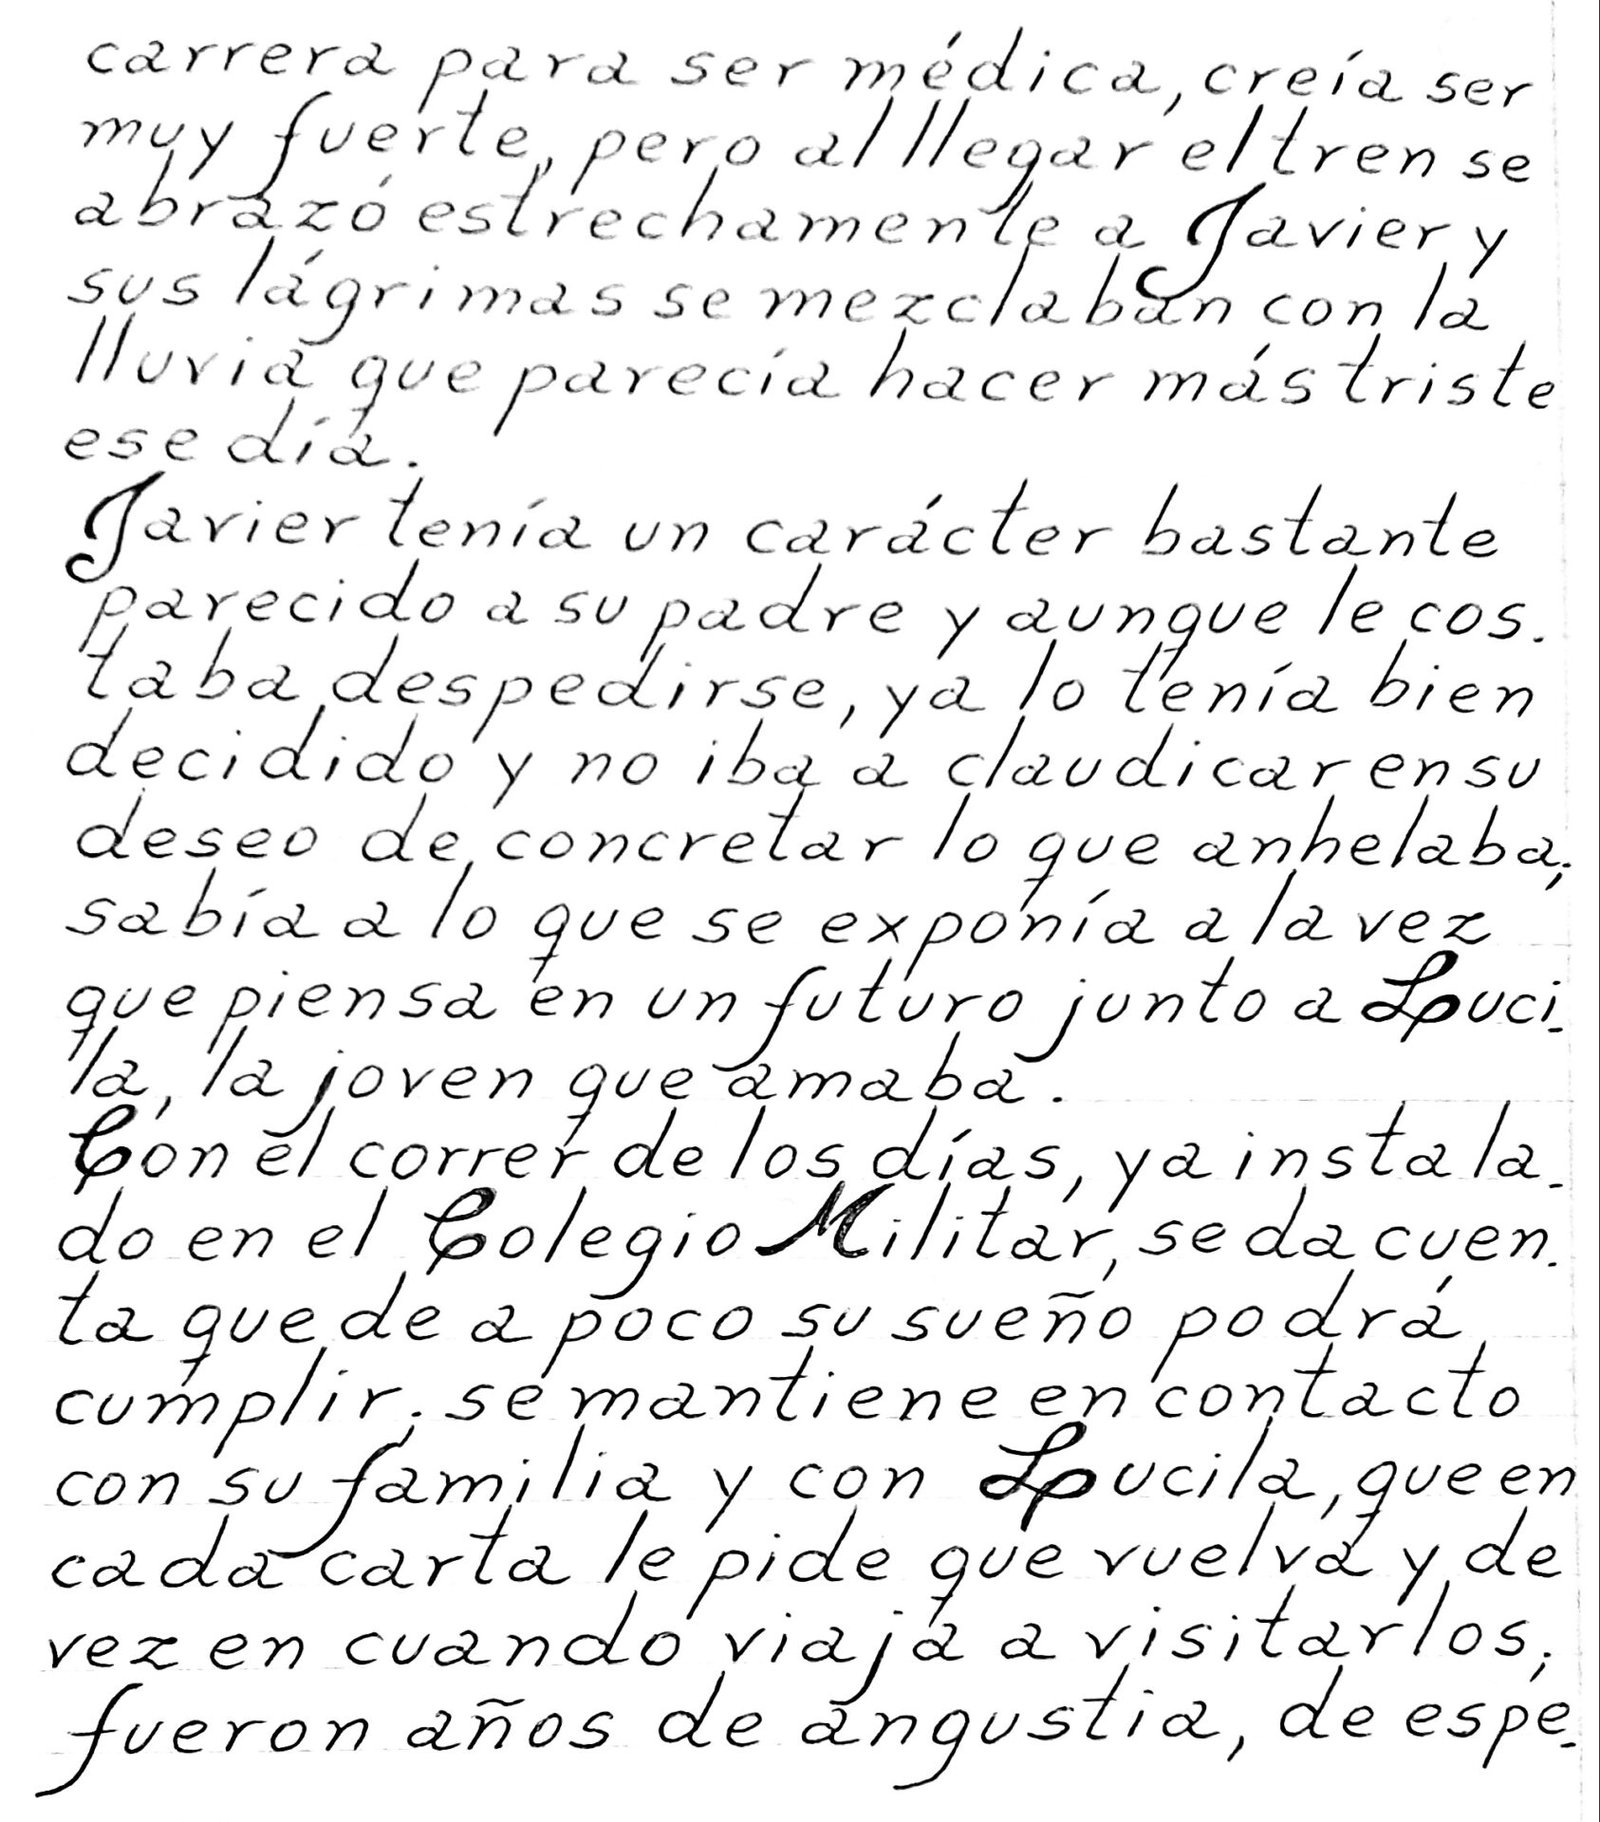 carrera para ser médica, creía ser
muy fuerte, pero al llegar el tren se
abrazó estrechamente a Javier y
sus lágrimas se mezclaban con la
lluvia que parecía hacer más triste
ese día.
Javier tenía un carácter bastante
parecido a su padre y aunque le cos-
taba despedirse, ya lo tenía bien
decidido y no iba a claudicar en su
deseo de concretar lo que anhelaba;
sabía a lo que se exponía a la vez
que piensa en un futuro junto a Luci-
la, la joven que amaba.
Con el correr de los días, ya instala-
do en el Colegio Militar, se da cuen-
ta que de a poco su sueño podrá
cumplir; se mantiene en contacto
con su familia y con Lucila, que en
cada carta le pide que vuelva y de
vez en cuando viaja a visitarlos;
fueron años de angustia, de espe-